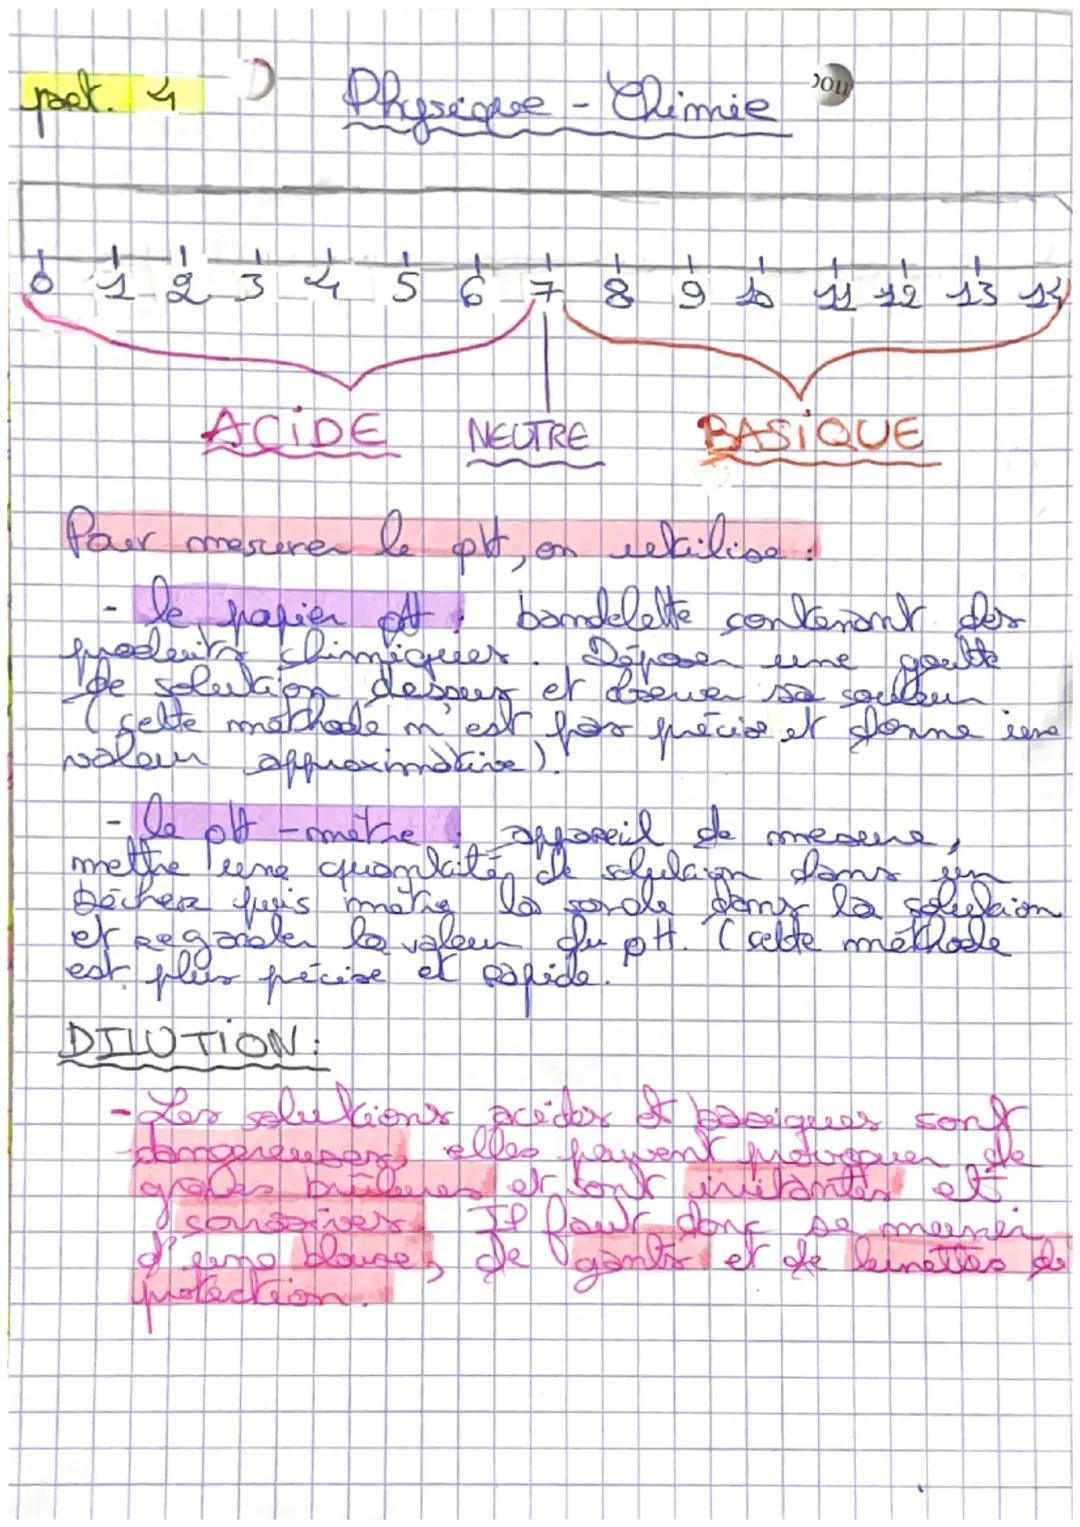 part. 4
Physique - Chimie
pou
0 1 2 3 4 5 6 7 8 9 10 11 12 13 14
ACIDE NEUTRE BASIQUE
Pour mesurer le pH, on utilise :
- le papier pH : bandelette contenant des
produits chimiques. Déposer une goutte
de solution dessus et observer sa couleur
(cette méthode n'est pas précise et donne une
valeur approximative).
- le pH-mètre : appareil de mesure,
mettre une quantité de solution dans un
bécher puis mettre la sonde dans la solution
et regarder la valeur du pH. (cette méthode
est plus précise et rapide.
DILUTION :
- Les solutions acides et basiques sont
dangereuses, elles peuvent provoquer de
graves brûlures et sont irritantes et
corrosives. Il faut donc se munir
d'une blouse, de gants et de lunettes de
protection.